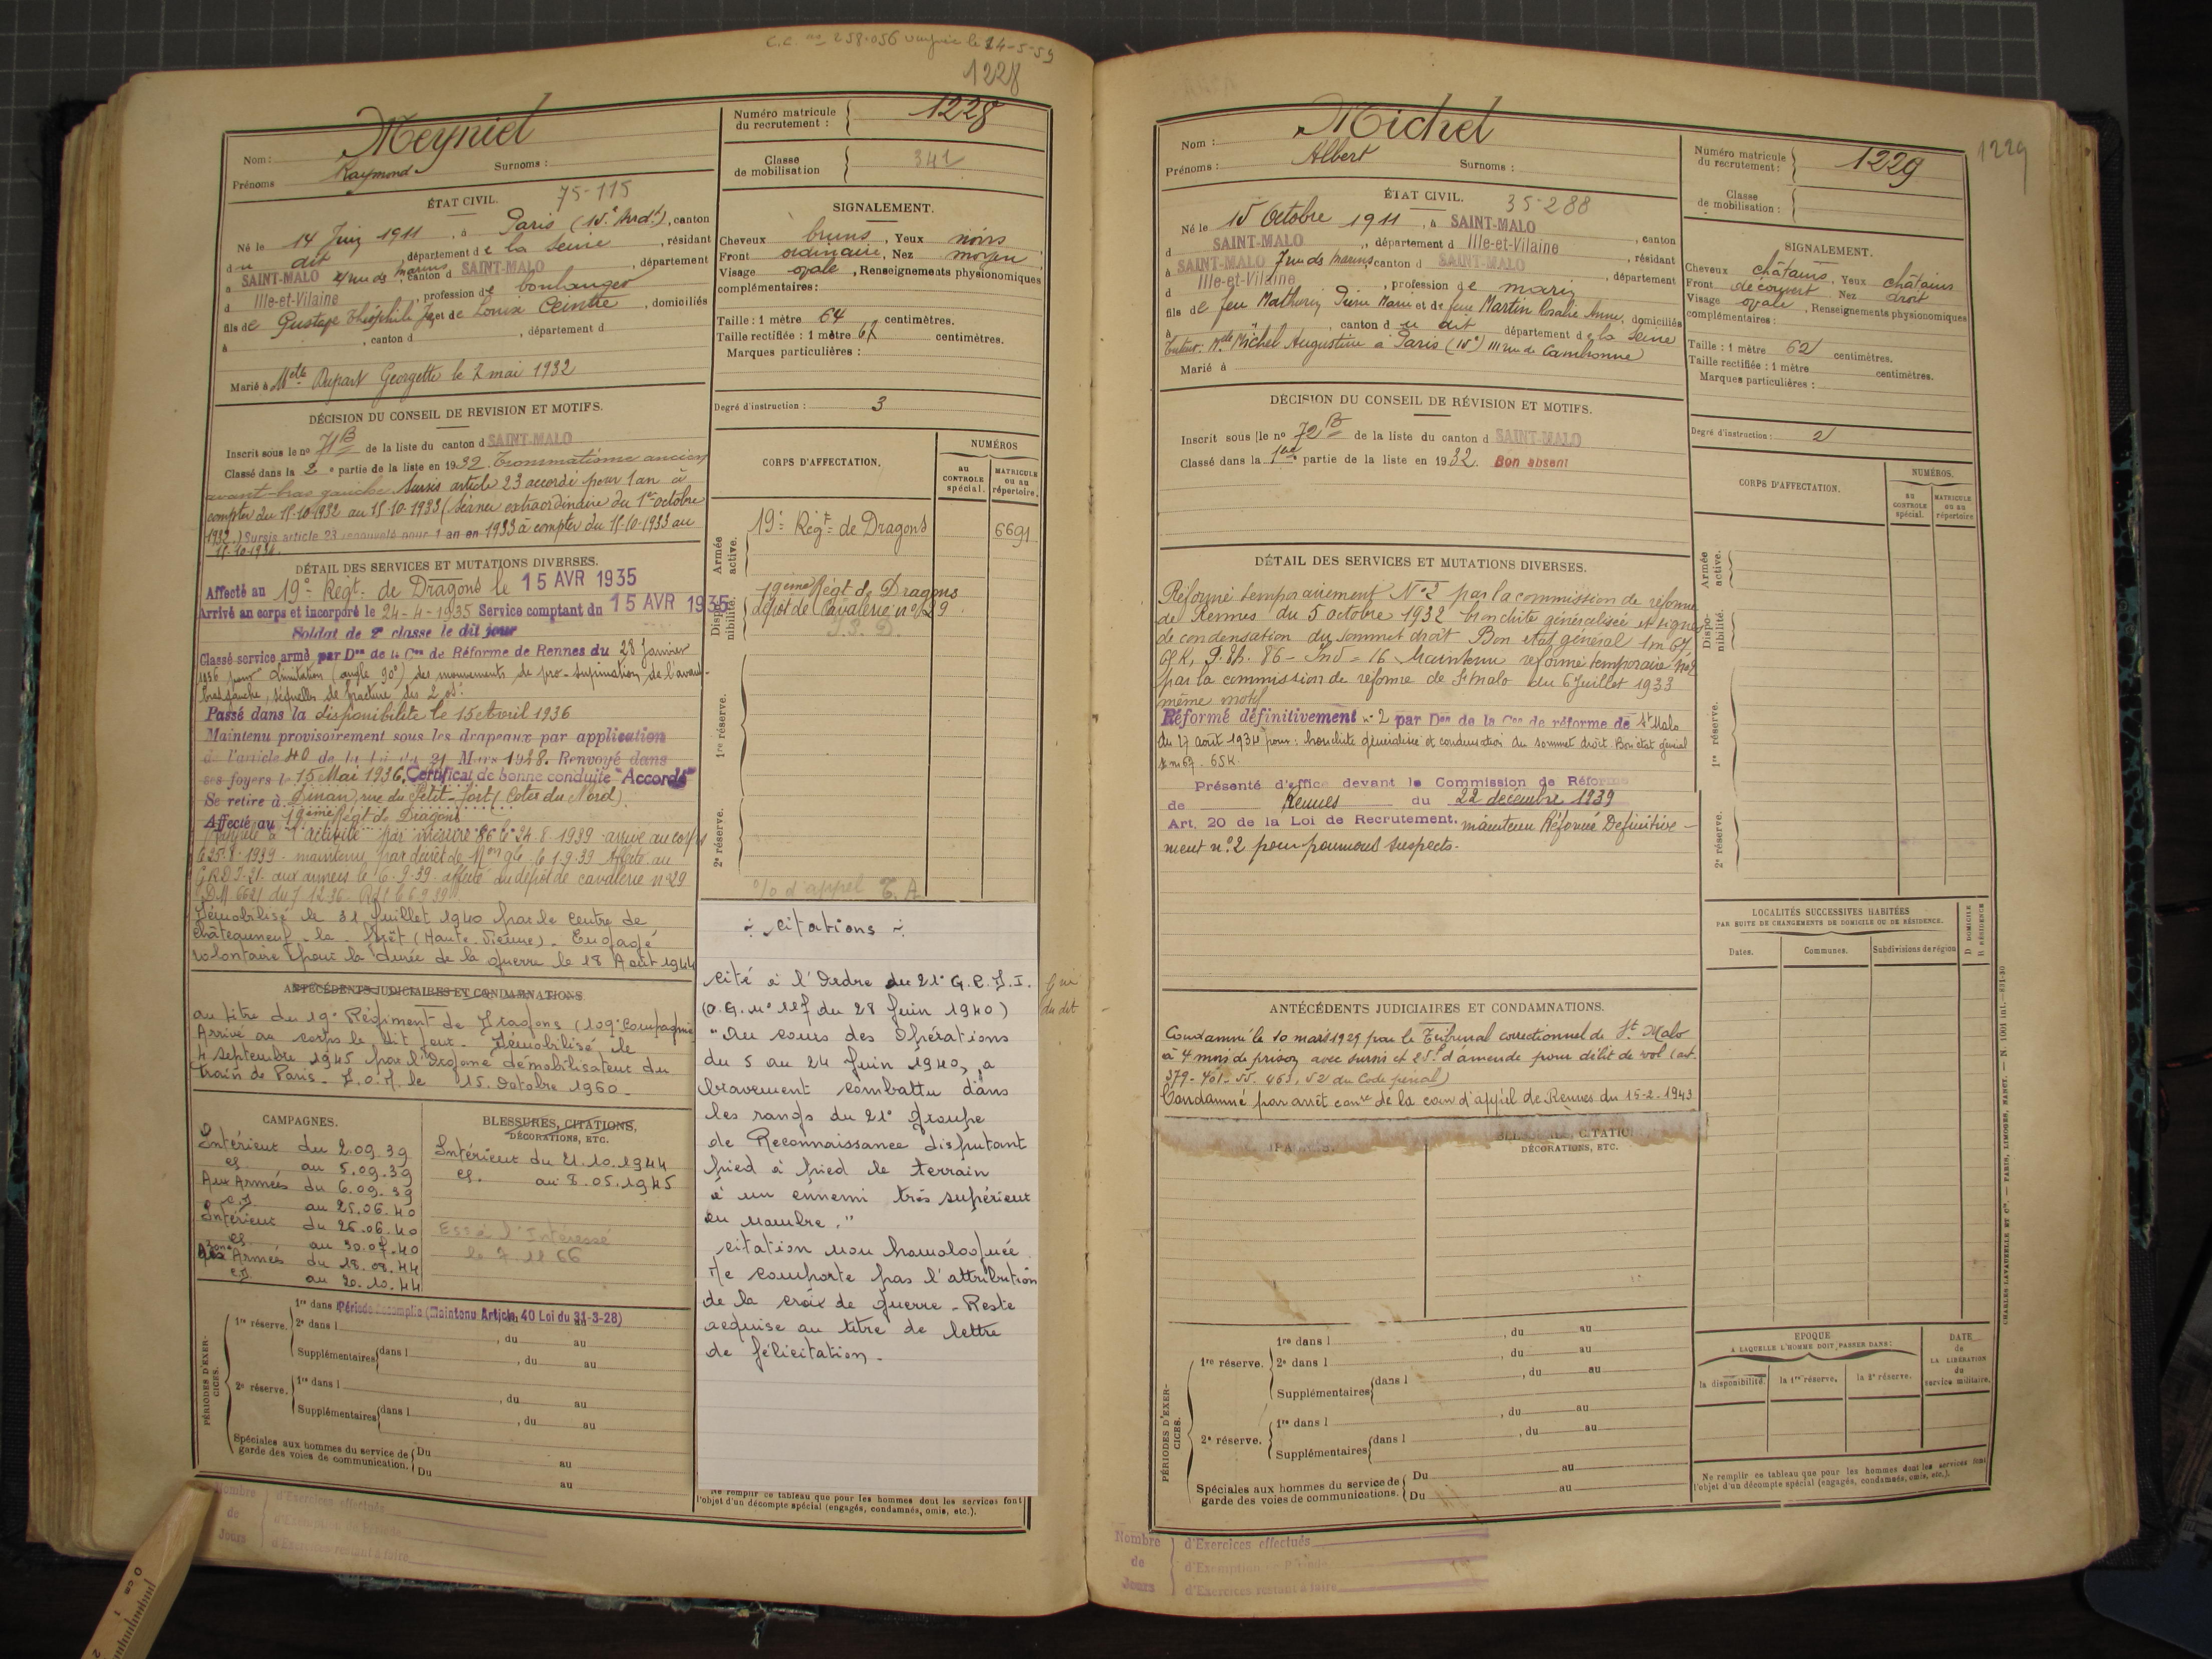 C.C. no 258.056 le 24-5-59
1228
Nom : Meyniel
Prénoms Raymond Surnoms :
Numéro matricule du recrutement : 1228
Classe de mobilisation 341
ÉTAT CIVIL. 75-115
Né le 14 Juin 1911, à Paris (15e Arrdt), canton
du dit, département de la Seine, résidant
à SAINT-MALO 4 rue des marins, canton d SAINT-MALO, département
d Ille-et-Vilaine, profession de boulanger
fils de Gustave Théophile et de Louise Ceintre, domiciliés
à , canton d , département d
Marié à Melle Dupart Georgette le 2 mai 1932
SIGNALEMENT.
Cheveux bruns, Yeux noirs
Front ordinaire, Nez moyen
Visage ovale, Renseignements physionomiques
complémentaires :
Taille : 1 mètre 64 centimètres.
Taille rectifiée : 1 mètre 67 centimètres.
Marques particulières :
Degré d'instruction : 3
DÉCISION DU CONSEIL DE REVISION ET MOTIFS.
Inscrit sous le no 71 B de la liste du canton d SAINT-MALO
Classé dans la 2e partie de la liste en 1932. Traumatisme ancien
avant-bras gauche Sursis article 23 accordé pour 1 an à
compter du 15-10-1932 au 15-10-1933 (Séance extraordinaire du 1er octobre
1932.) Sursis article 23 renouvelé pour 1 an en 1933 à compter du 15-10-1933 au
15-10-1934.
CORPS D'AFFECTATION.
NUMÉROS
au CONTROLE spécial.
MATRICULE ou au répertoire.
Armée active.
19e Régt de Dragons 6691
Disponibilité.
19ème Régt de Dragons
dépôt de Cavalerie no 29
1re réserve.
2e réserve.
% d'appel T.A.
DÉTAIL DES SERVICES ET MUTATIONS DIVERSES.
Affecté au 19e Régt de Dragons le 15 AVR 1935
Arrivé au corps et incorporé le 24-4-1935 Service comptant du 15 AVR 1935
Soldat de 2e classe le dit jour
Classé service armé par Don de la Con de Réforme de Rennes du 28 Janvier
1936 pour limitation (angle 90°) des mouvements de pro-supination de l'avant-
bras gauche, séquelles de fracture des 2 os.
Passé dans la disponibilité le 15 Avril 1936
Maintenu provisoirement sous les drapeaux par application
de l'article 40 de la loi du 31 Mars 1928. Renvoyé dans
ses foyers le 15 Mai 1936. Certificat de bonne conduite "Accordé"
Se retire à Dinan, rue du Petit-Fort (Côtes du Nord)
Affecté au 19ème Régt de Dragons
Rappelé à l'activité par mesure le 24.8.1939 arrivé au corps
le 25.8.1939. maintenu par décret de Mon gle le 1.9.39 Affecté au
G.R.D.I. 21 aux armées le 6.9.39 affecté au dépôt de cavalerie no 29
Démobilisé le 31 Juillet 1940 par le Centre de
Châteauneuf-la-Forêt (Haute-Vienne). Engagé
volontaire pour la durée de la guerre le 18 Août 1944
ANTÉCÉDENTS JUDICIAIRES ET CONDAMNATIONS
au titre du 19e Régiment de Dragons (109e Compagnie
Arrivé au corps le dit jour. Démobilisé le
4 septembre 1945 par l'Organe démobilisateur du
train de Paris. le 15 Octobre 1960.
CAMPAGNES.
Intérieur du 2.09.39
au 5.09.39
Aux Armées du 6.09.39
au 25.06.40
Intérieur du 26.06.40
au 30.07.40
Zone Armées du 18.08.44
au 20.10.44
BLESSURES, CITATIONS,
DÉCORATIONS, ETC.
Intérieur du 21.10.1944
au 8.05.1945
Ess à l'Intéressé
le 7.11.66
Citations
Cité à l'Ordre du 21e G.R.D.I.
(O.G. no 127 du 28 Juin 1940)
"Au cours des Opérations
du 5 au 24 Juin 1940, a
bravement combattu dans
les rangs du 21e Groupe
de Reconnaissance disputant
pied à pied le terrain
à un ennemi très supérieur
en nombre."
Citation non homologuée
Ne comporte pas l'attribution
de la croix de guerre. Reste
acquise au titre de lettre
de félicitation.
PÉRIODES D'EXERCICES.
1re réserve. 1re dans l Période accomplie (Maintenu Article 40 Loi du 31-3-28)
2e dans l , du au
Supplémentaires dans l , du au
2e réserve. 1re dans l , du au
Supplémentaires dans l , du au
Spéciales aux hommes du service de garde des voies de communication. Du au
Du au
Ne remplir ce tableau que pour les hommes dont les services font
l'objet d'un décompte spécial (engagés, condamnés, omis, etc.).
Nombre de Jours
d'Exercices effectués
d'Exemption de Période
d'Exercices restant à faire
1229
Nom : Michel
Prénoms : Albert Surnoms :
Numéro matricule du recrutement : 1229
Classe de mobilisation :
ÉTAT CIVIL. 35-288
Né le 15 Octobre 1911, à SAINT-MALO, canton
d SAINT-MALO, département d Ille-et-Vilaine, résidant
à SAINT-MALO 7 rue des marins, canton d SAINT-MALO, département
d Ille-et-Vilaine, profession de marin
fils de feu Mathurin Pierre Marie et de feue Martin Rosalie Anne, domiciliés
à , canton du dit département de la Seine
Tuteur: Melle Michel Augustine à Paris (15e) 111 rue de Cambronne
Marié à
SIGNALEMENT.
Cheveux châtains, Yeux châtains
Front découvert Nez droit
Visage ovale, Renseignements physionomiques
complémentaires :
Taille : 1 mètre 62 centimètres.
Taille rectifiée : 1 mètre centimètres.
Marques particulières :
Degré d'instruction : 2
DÉCISION DU CONSEIL DE RÉVISION ET MOTIFS.
Inscrit sous le no 72 B de la liste du canton d SAINT-MALO
Classé dans la 1ère partie de la liste en 1932. Bon absent
CORPS D'AFFECTATION.
NUMÉROS.
au CONTROLE spécial.
MATRICULE ou au répertoire
Armée active.
Disponibilité.
1re réserve.
2e réserve.
DÉTAIL DES SERVICES ET MUTATIONS DIVERSES.
Réformé temporairement No 2 par la commission de réforme
de Rennes du 5 octobre 1932 bronchite généralisée et signes
de condensation du sommet droit Bon état général 1m67,
P.Th. 86 - Ind = 16 Maintenu réformé temporaire No 2
par la commission de réforme de St Malo du 6 Juillet 1933
même motif
Réformé définitivement no 2 par Don de la Con de réforme de St Malo
du 27 août 1934 pour : bronchite généralisée et condensation du sommet droit. Bon état général
1m67. 65K.
Présenté d'office devant la Commission de Réforme
de Rennes du 22 décembre 1939
Art. 20 de la Loi de Recrutement. maintenu Réformé Définitive-
ment no 2 pour poumons suspects.
LOCALITÉS SUCCESSIVES HABITÉES
PAR SUITE DE CHANGEMENTS DE DOMICILE OU DE RÉSIDENCE.
Dates. Communes. Subdivisions de région
D DOMICILE
R RÉSIDENCE
ANTÉCÉDENTS JUDICIAIRES ET CONDAMNATIONS.
Condamné le 10 mars 1929 par le Tribunal correctionnel de St Malo
à 4 mois de prison avec sursis et 25f d'amende pour délit de vol (art.
379-401-55. 463, 52 du Code pénal)
Condamné par arrêt de la cour d'appel de Rennes du 15-2-1943
BLESSURES, CITATIONS
DÉCORATIONS, ETC.
PÉRIODES D'EXERCICES.
1re réserve. 1re dans l , du au
2e dans l , du au
Supplémentaires dans l , du au
2e réserve. 1re dans l , du au
Supplémentaires dans l , du au
Spéciales aux hommes du service de garde des voies de communications. Du au
Du au
EPOQUE
A LAQUELLE L'HOMME DOIT PASSER DANS:
la disponibilité. la 1re réserve. la 2e réserve.
DATE de LA LIBÉRATION du service militaire.
Ne remplir ce tableau que pour les hommes dont les services font
l'objet d'un décompte spécial (engagés, condamnés, omis, etc.).
Nombre de Jours
d'Exercices effectués
d'Exemption Période
d'Exercices restant à faire
CHARLES-LAVAUZELLE ET Cie. — PARIS, LIMOGES, NANCY.